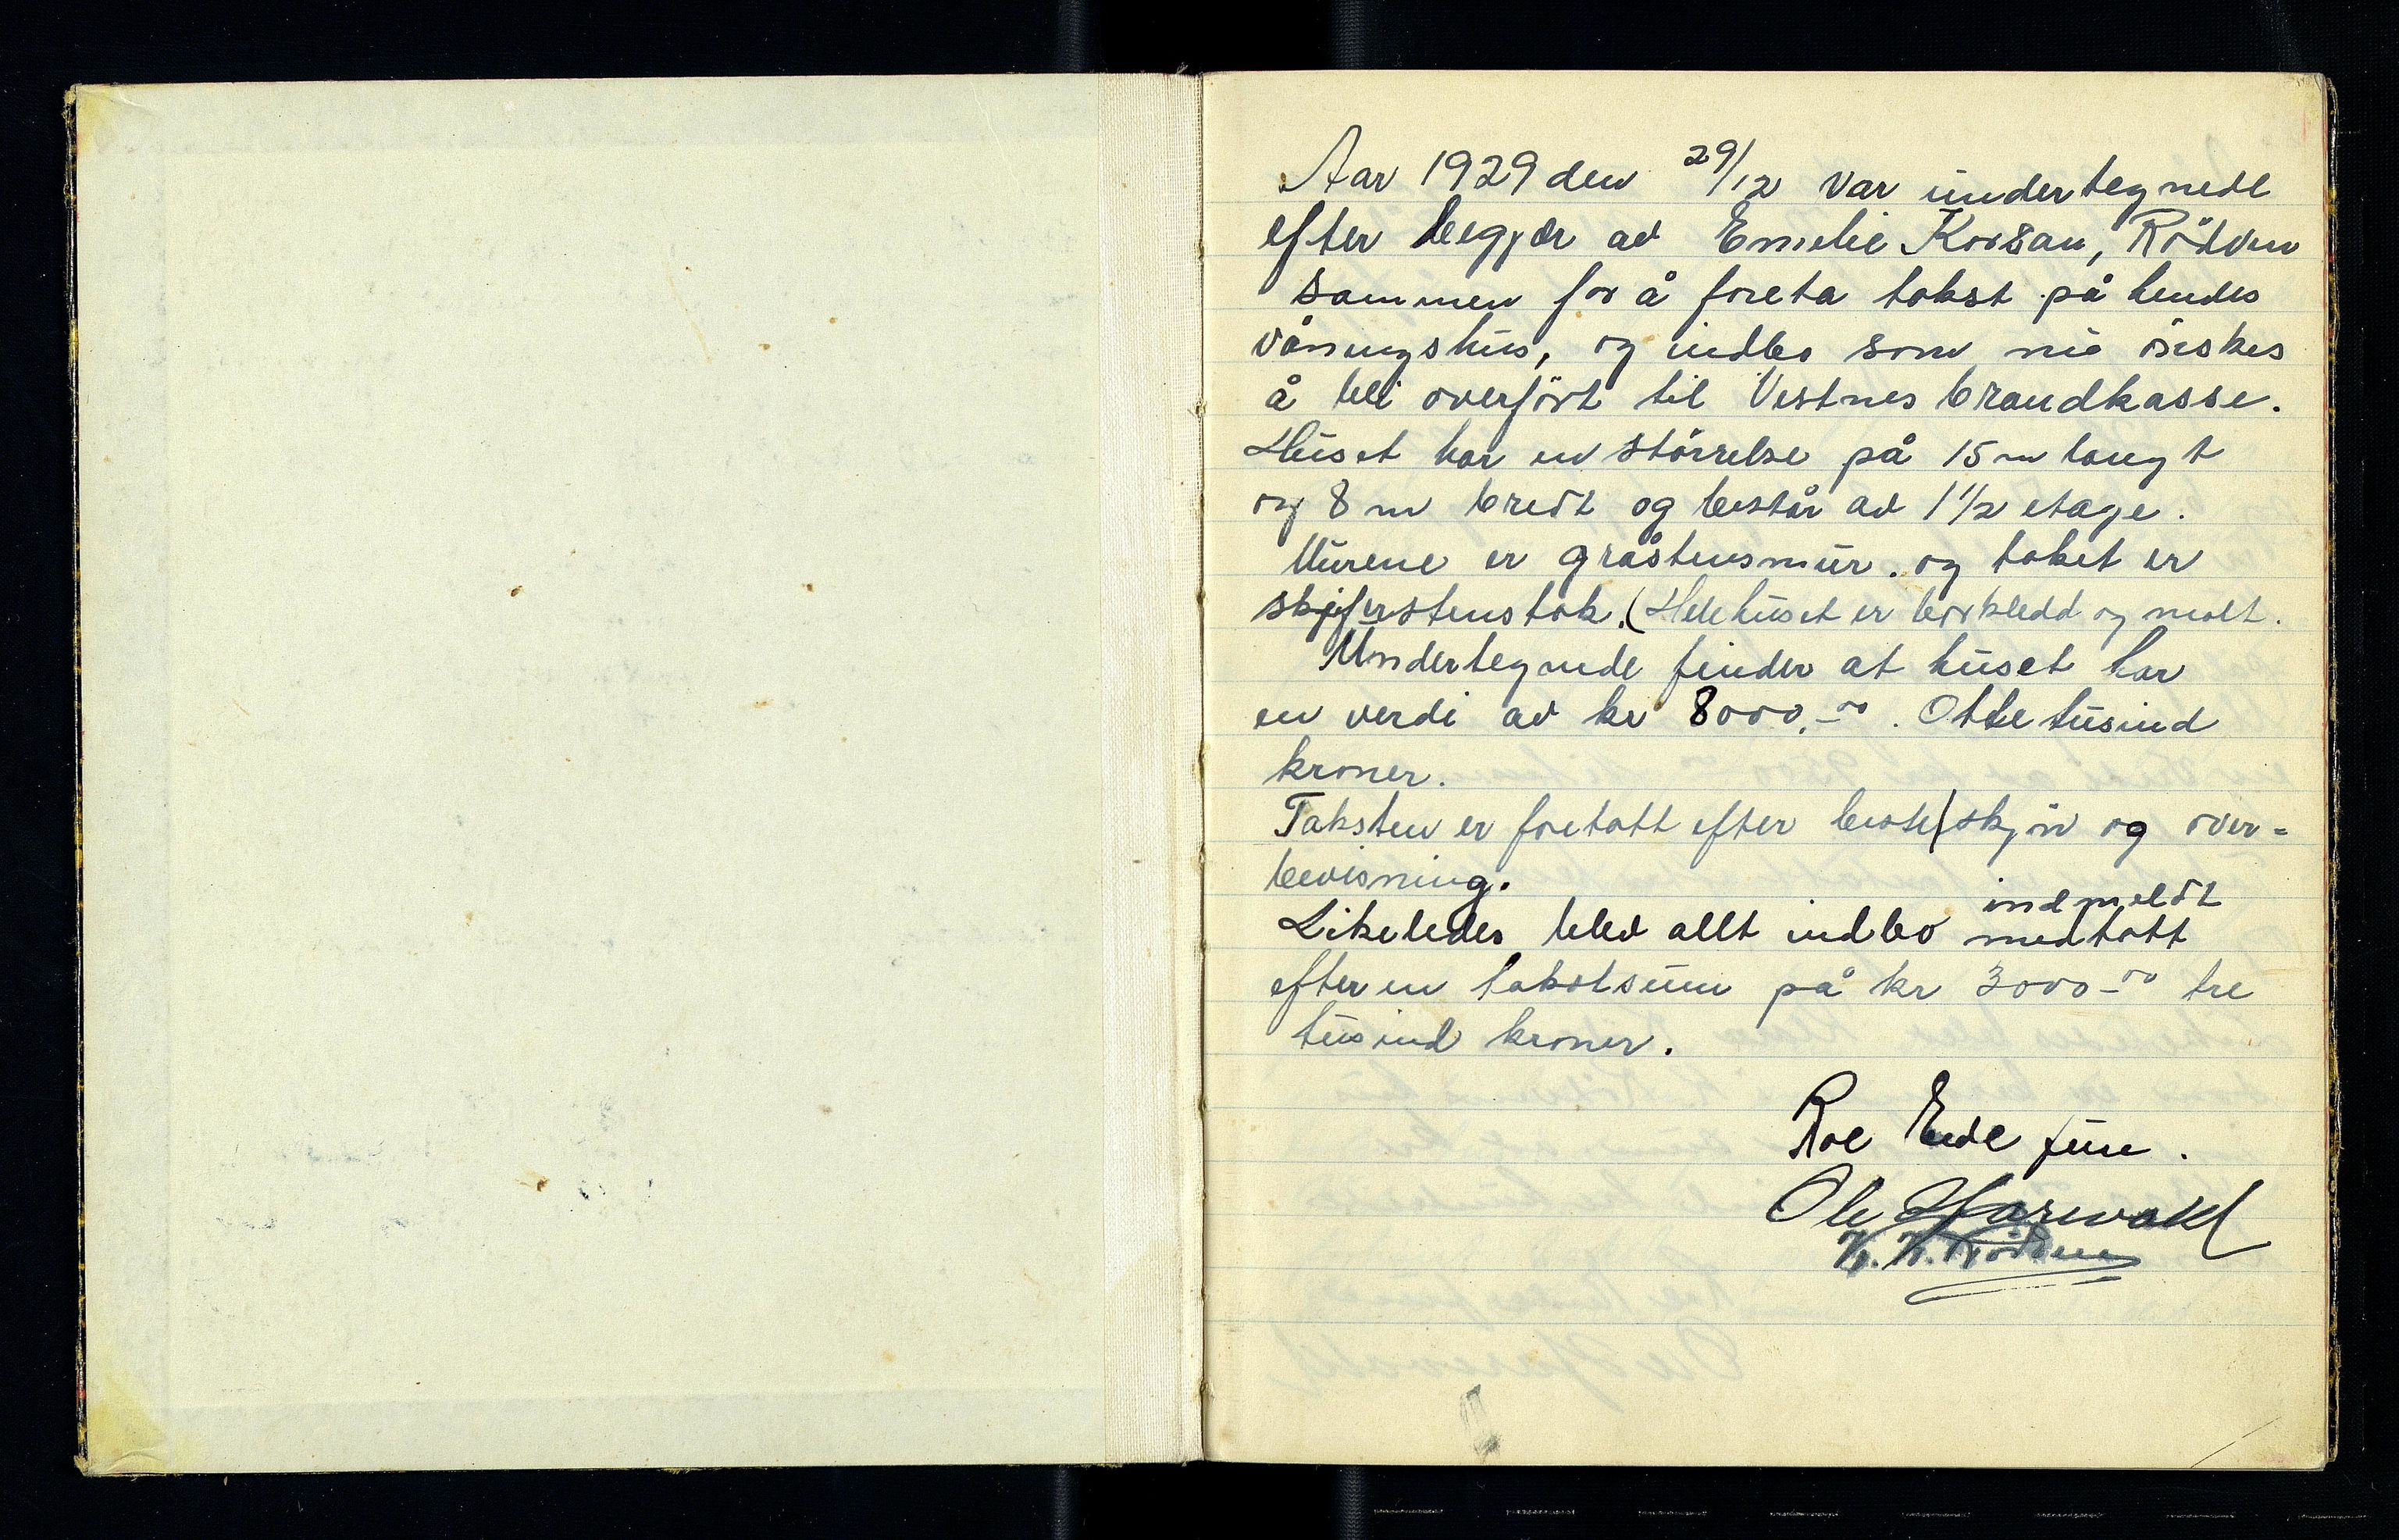 Aar 1929 den 29/12 var undertegnede
efter begjær av Emelie Korsan, Rödven
sammen for å foreta takst på hendes
våningshus, og indbo som nu önskes
å bli overfört til Vestnes brandkasse.
Huset har en störrelse på 15 m langt
og 8 m bredt og består av 1 1/2 etage.
Murene er gråstensmur. og taket er
skjeferstenstak. (Hele huset er borkledd og malt.
Undertegnede finder at huset har
en verdi av kr 8000.-00. Otte tusind
kroner.
Taksten er foretatt efter beste skjön og over=
bevisning.
indmeldt
Likeledes blev allt indbo medtatt
efter en takstsum på kr 3000-00 tre
tusind kroner.
Roe Eide jun.
Ole Harevold
K. K. Rödven